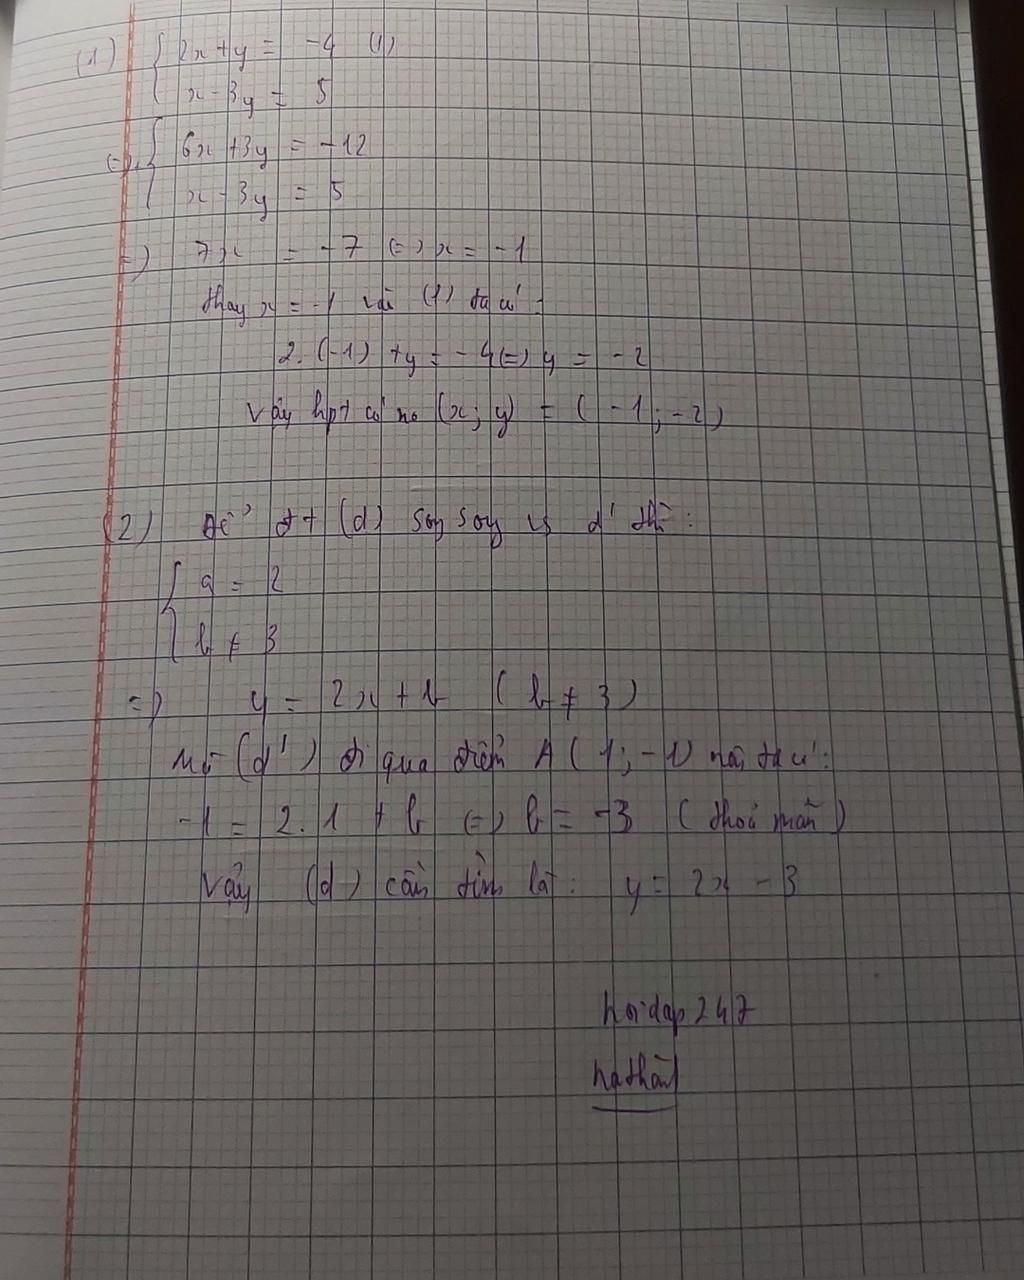 (1) { 2x + y = -4 (1)
x - 3y = 5
(=) { 6x + 3y = -12
x - 3y = 5
=) 7x = -7 (=) x = -1
thay x = -1 vào (1) ta có:
2. (-1) + y = -4 (=) y = -2
Vậy hpt có no (x; y) = (-1; -2)
(2) Để đt (d) song song vs d' thì:
{ a = 2
b ≠ 3
=) y = 2x + b (b ≠ 3)
Mà (d') đi qua điểm A (1; -1) nên ta có:
-1 = 2. 1 + b (=) b = -3 (thoả mãn)
Vậy (d) cần tìm là: y = 2x - 3
hoidap247